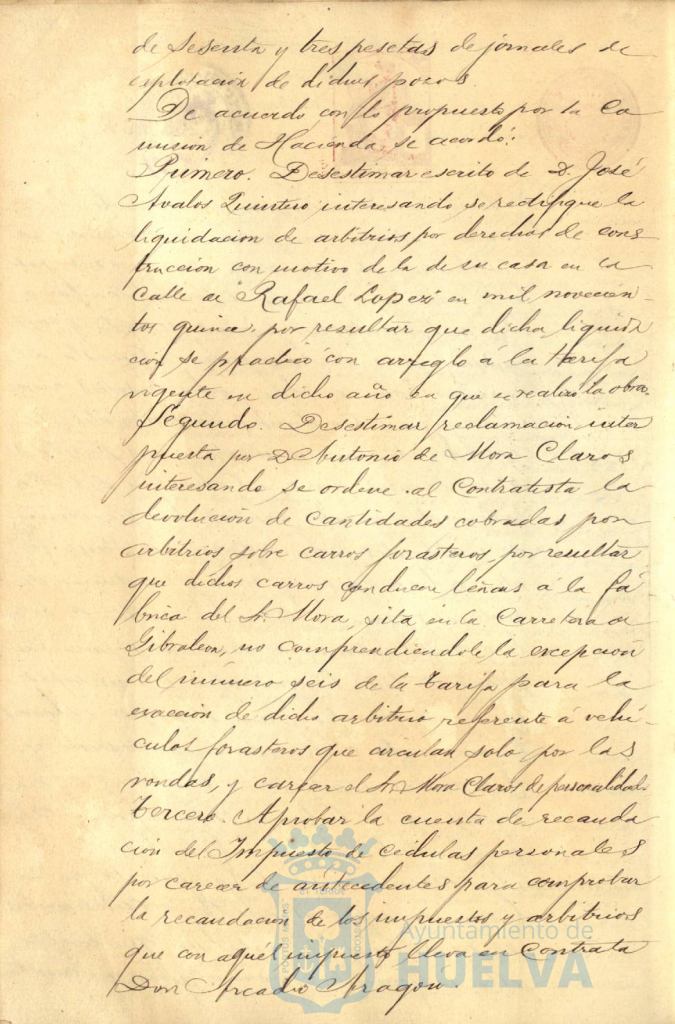 de sesenta y tres pesetas de jornales de
explotación de dichos pozos.
De acuerdo con lo propuesto por la Co
misión de Hacienda se acordó:
Primero. Desestimar escrito de D. José
Avalos Quintero interesando se rectifique la
liquidacion de arbitrios por derechos de cons
trucción con motivo de la de su casa en la
calle de "Rafael Lopez" en mil novecien-
tos quince, por resultar que dicha liquida
ción se practicó con arreglo á la tarifa
vigente en dicho año en que se realizó la obra.
Segundo. Desestimar reclamación inter
puesta por D. Antonio de Mora Claros
interesando se ordene al Contratista la
devolución de cantidades cobradas por
arbitrios sobre carros forasteros, por resultar
que dichos carros conducen leñas á la fá-
brica del Sr. Mora, sita en la Carretera de
Gibraleon, no comprendiendole la excepción
del número seis de la tarifa para la
exacción de dicho arbitrio referente á vehí-
culos forasteros que circulan solo por las
rondas, y carecer el Sr. Mora Claros de personalidad.
Tercero. Aprobar la cuenta de recauda
ción del Impuesto de cedulas personales
por carecer de antecedentes para comprobar
la recaudacion de los impuestos y arbitrios
que con aquél impuesto lleva en Contrata
Don Arcadio Aragón.
Ayuntamiento de
HUELVA